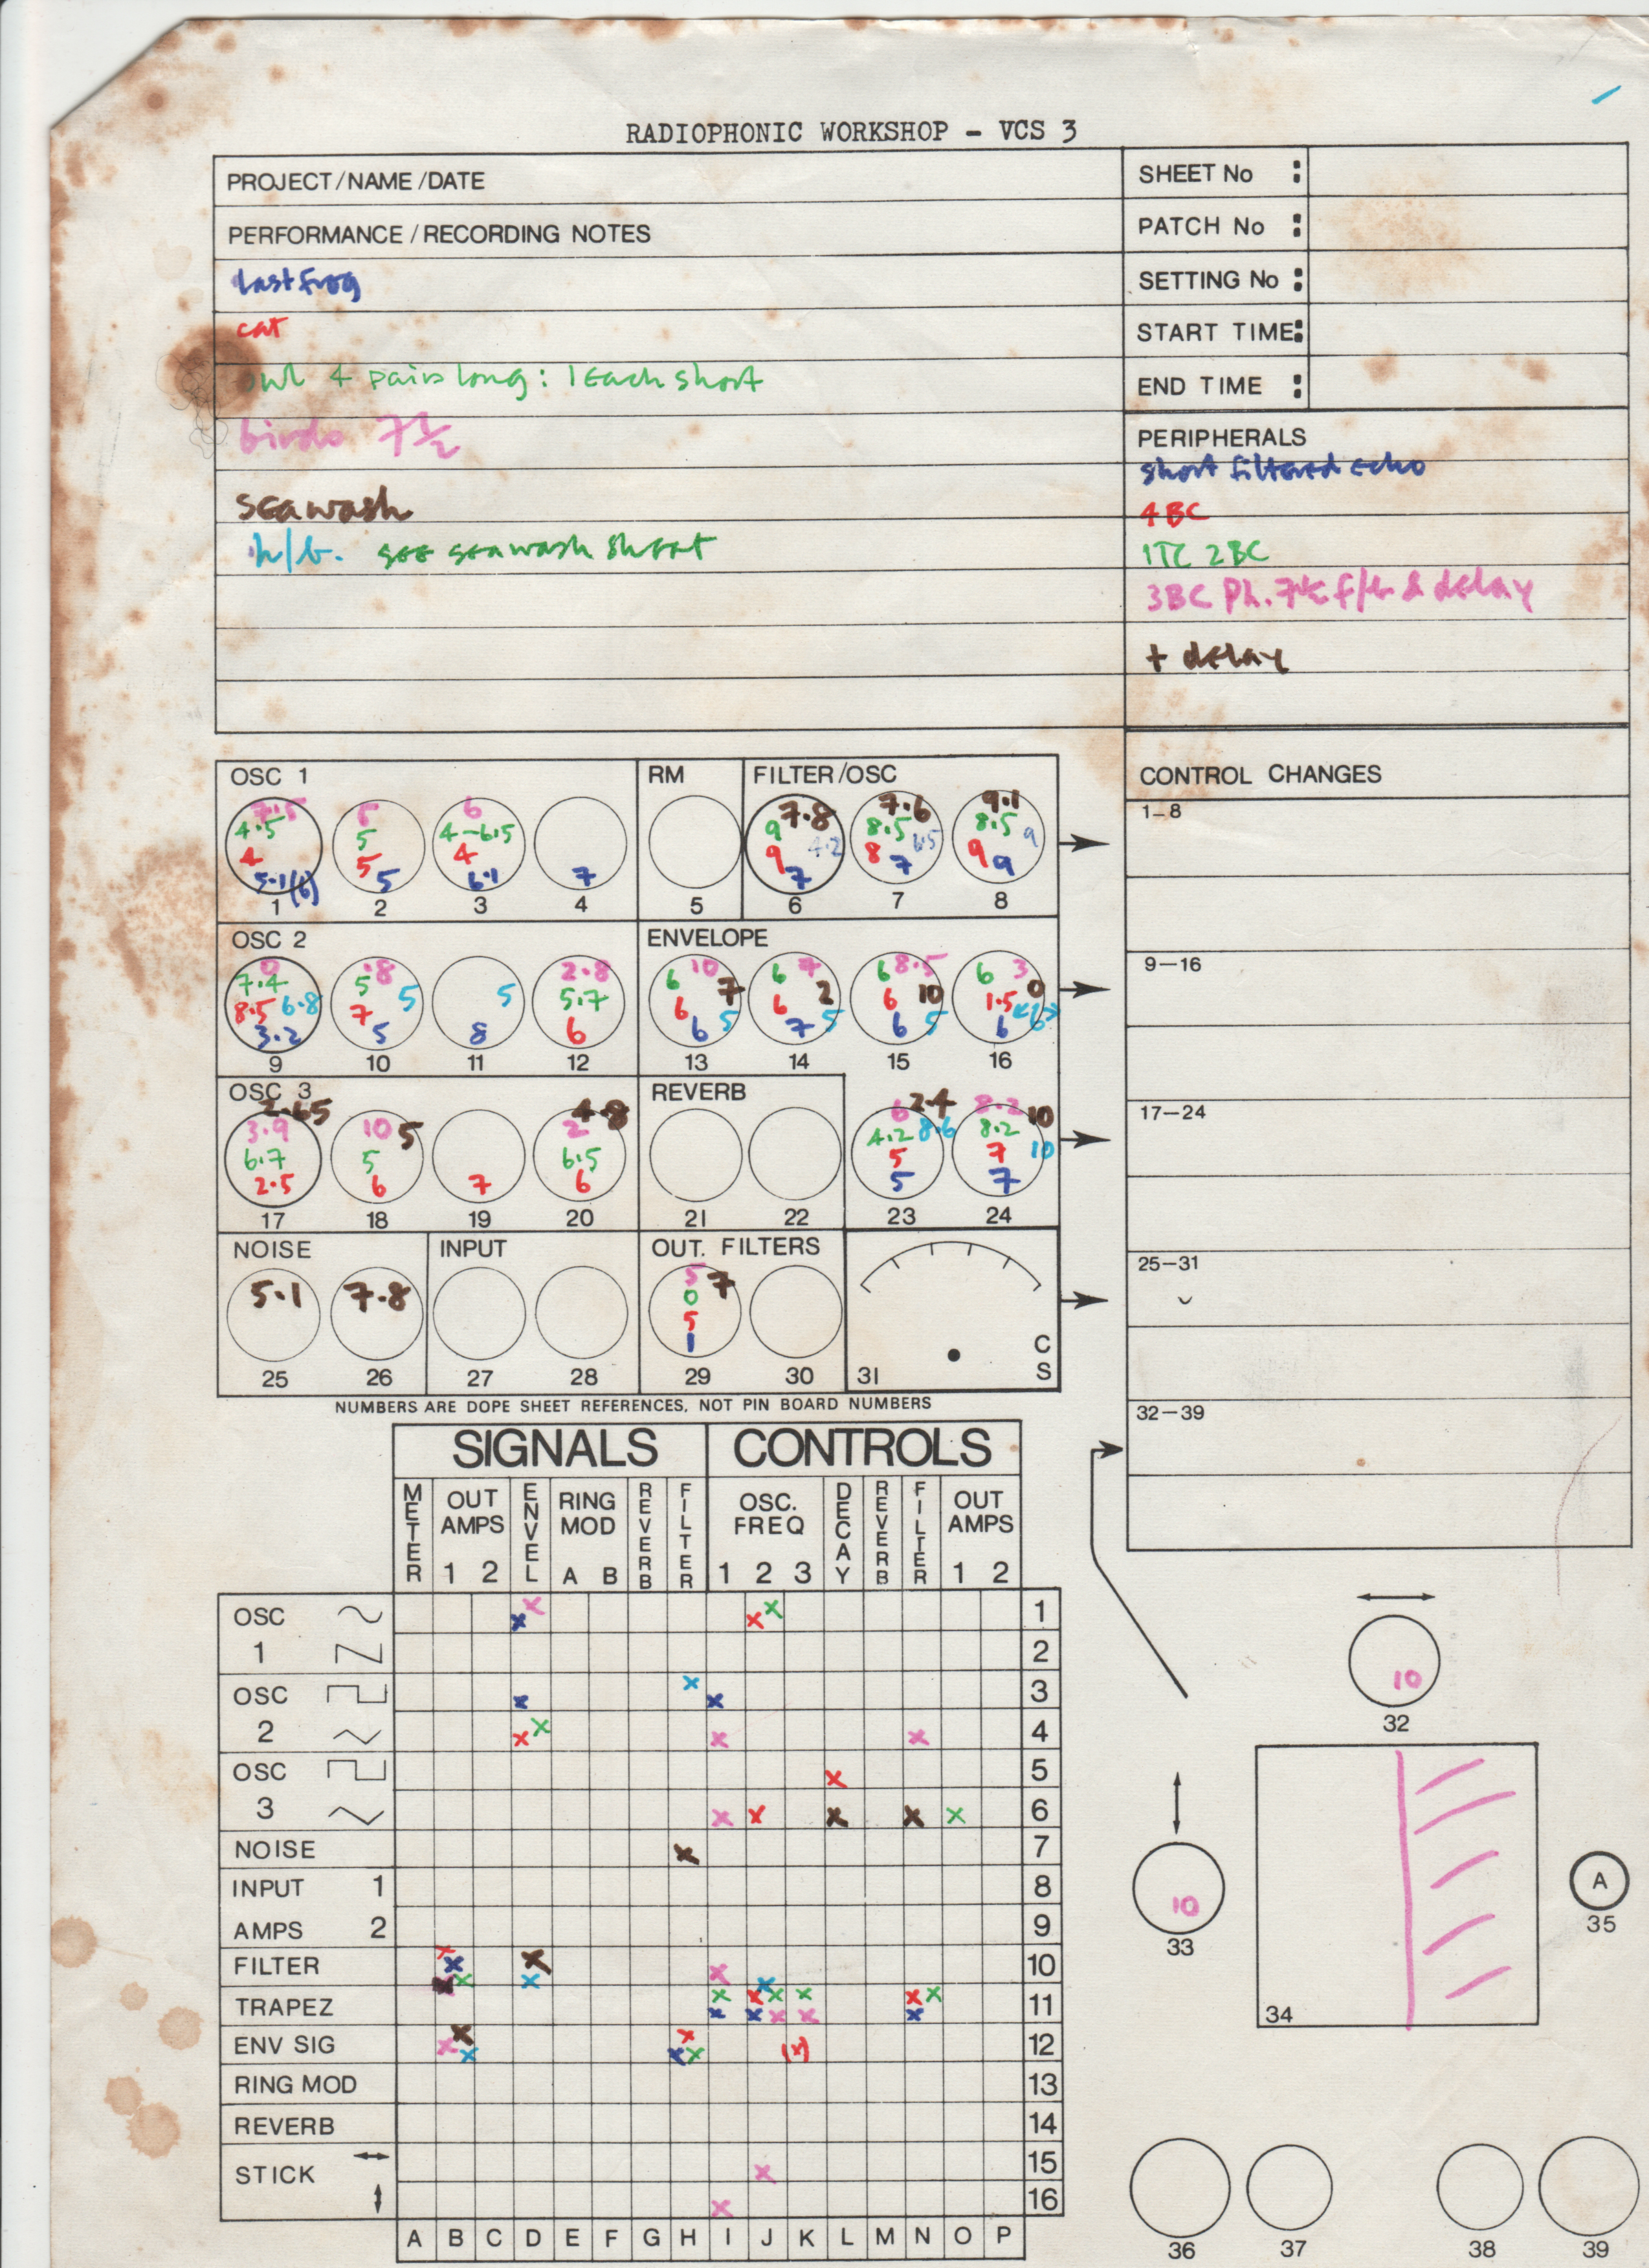 RADIOPHONIC WORKSHOP - VCS 3
PROJECT/NAME/DATE
PERFORMANCE/RECORDING NOTES
last frog
cat
owl 4 pairs long: 1 each short
birds 7½
seawash
h/b. see seawash sheet
SHEET No :
PATCH No :
SETTING No :
START TIME:
END TIME :
PERIPHERALS
short filtered echo
4BC
1TC 2BC
3BC Ph. 7½ f/b & delay
+ delay
OSC 1
7.5 5 6
4.5 5 4-6.5
4 5 4
5.1(6) 5 6.1 7
1 2 3 4
RM
5
FILTER/OSC
7.8 7.6 9.1
9 8.5 8.5
4.2 6.5 9
9 8 9
7 7 9
6 7 8
OSC 2
0 .8 2.8
7.4 5 5.7
8.5 6.8 7 5 5 6
3.2 5 8
9 10 11 12
ENVELOPE
6 10 6 7 6 8.5 6 3
7 2 10 0
6 6 6 1.5
6 5 7 5 6 5 6 6
13 14 15 16
OSC 3
2.65 5 4.8
3.9 10 2
6.7 5 6.5
2.5 6 7 6
17 18 19 20
REVERB
21 22
6 2.4 8.2 10
4.2 8.6 8.2 10
5 7
5 7
23 24
NOISE
5.1 7.8
25 26
INPUT
27 28
OUT. FILTERS
5 7
0
5
1
29 30
C
S
31
NUMBERS ARE DOPE SHEET REFERENCES, NOT PIN BOARD NUMBERS
CONTROL CHANGES
1-8
9-16
17-24
25-31
32-39
SIGNALS CONTROLS
METER
OUT AMPS 1 2
ENVEL
RING MOD A B
REVERB
FILTER
OSC. FREQ 1 2 3
DECAY
REVERB
FILTER
OUT AMPS 1 2
OSC 1
x x x x 1
2
OSC 2
x x x 3
x x x x 4
OSC 3
x 5
x x x x x 6
NOISE x 7
INPUT 1 8
AMPS 2 9
FILTER x x x x x x x 10
TRAPEZ x x x x x x x x x x x x 11
ENV SIG x x x x x x (x) 12
RING MOD 13
REVERB 14
STICK x 15
x 16
A B C D E F G H I J K L M N O P
10
32
10
33
34
A
35
36 37 38 39